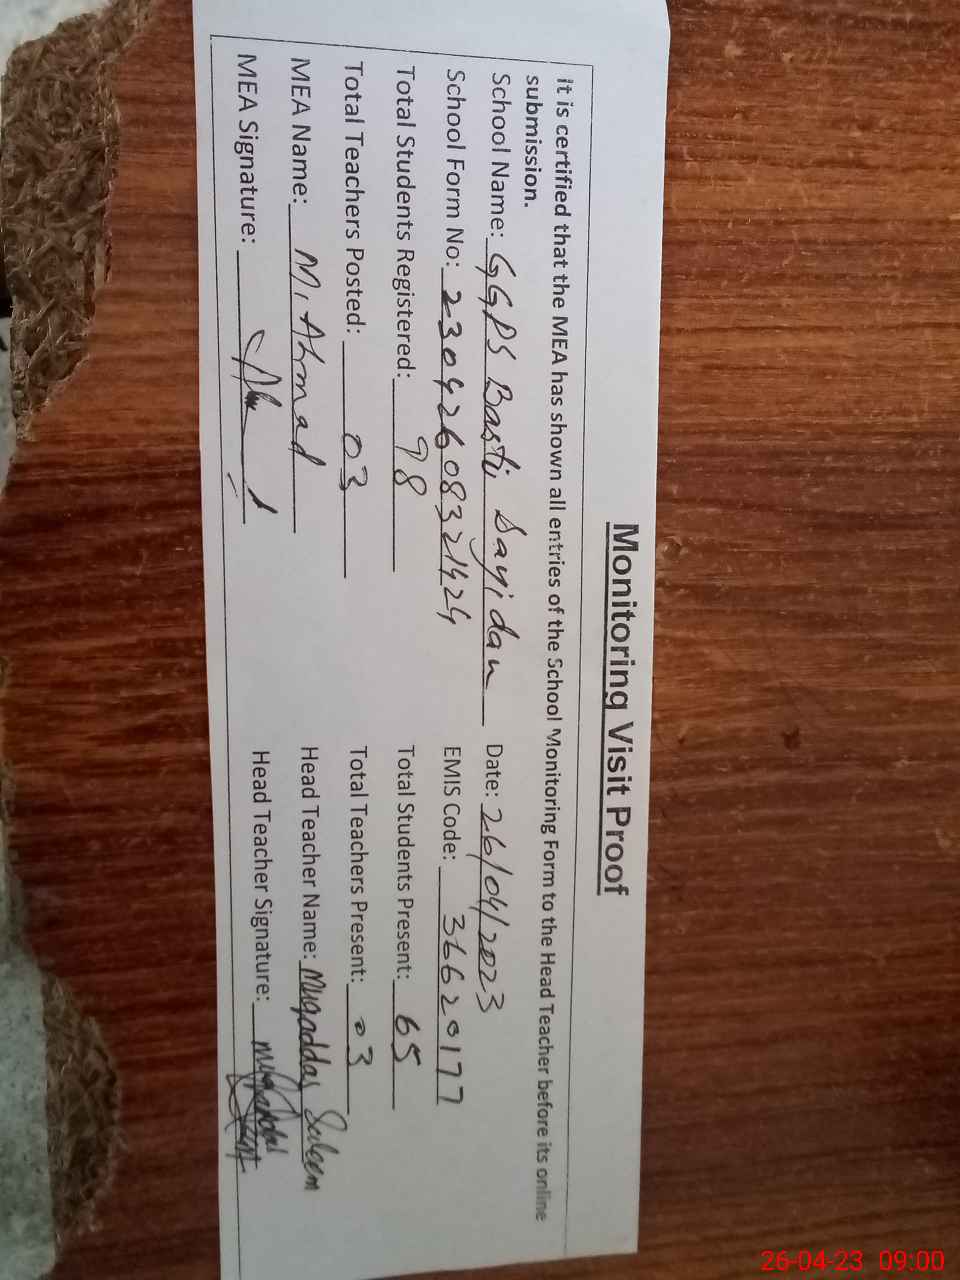 Monitoring Visit Proof
it is certified that the MEA has shown all entries of the School Monitoring Form to the Head Teacher before its online
submission.
School Name: GGPS Basti Sayidan Date: 26/04/2023
School Form No: 23042608321424 EMIS Code: 36620177
Total Students Registered: 98 Total Students Present: 65
Total Teachers Posted: 03 Total Teachers Present: 03
MEA Name: M. Ahmad Head Teacher Name: Muqaddas Saleem
MEA Signature: Head Teacher Signature: Muqaddas
26-04-23 09:00